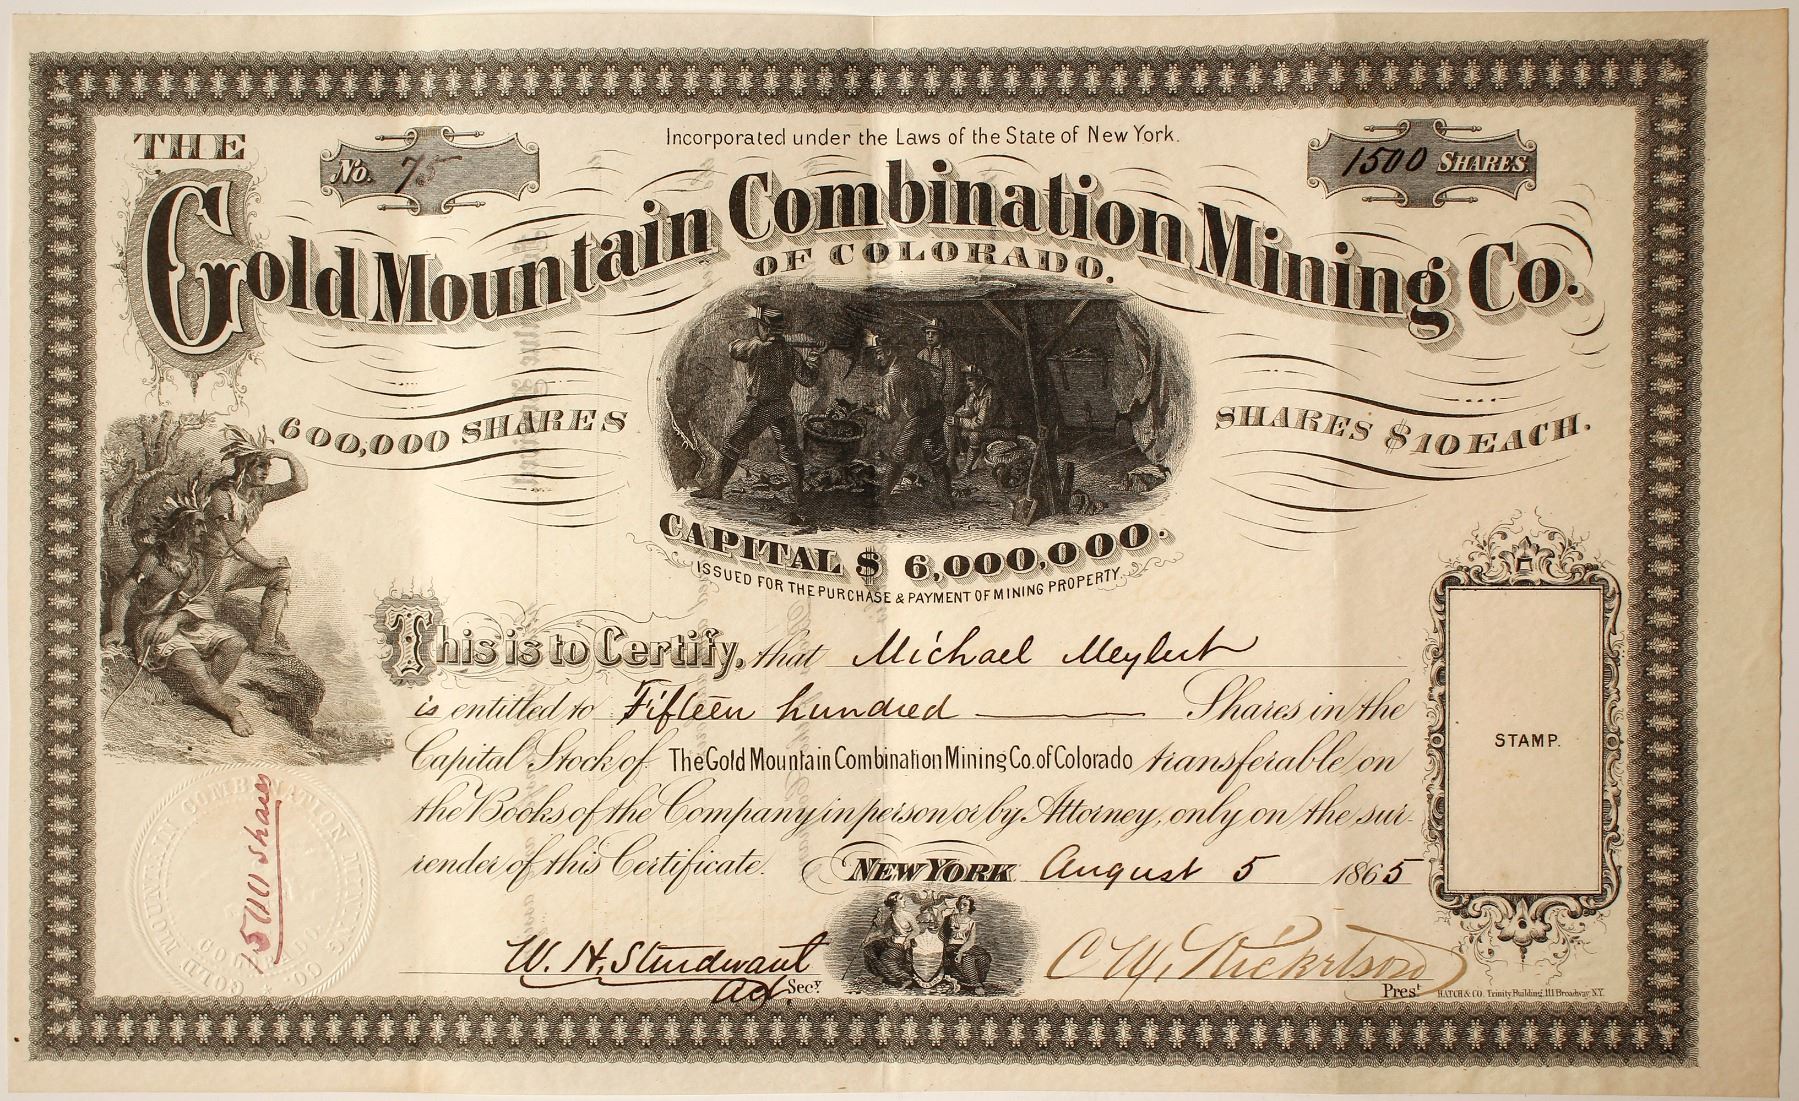 Incorporated under the Laws of the State of New York.
No. 75
1500 SHARES.
THE
Gold Mountain Combination Mining Co.
OF COLORADO.
600,000 SHARES
SHARES $10 EACH.
CAPITAL $ 6,000,000.
ISSUED FOR THE PURCHASE & PAYMENT OF MINING PROPERTY
This is to Certify, that Michael Meylert
is entitled to Fifteen hundred Shares in the
Capital Stock of The Gold Mountain Combination Mining Co. of Colorado transferable on
the Books of the Company in person or by Attorney, only on the sur-
render of this Certificate. NEW YORK August 5 1865
STAMP.
1500 shares
GOLD MOUNTAIN COMBINATION MINING CO.
COLORADO.
W. H. Sturdevant
act. Secy.
Prest.
HATCH & CO. Trinity Building, 111 Broadway, N.Y.